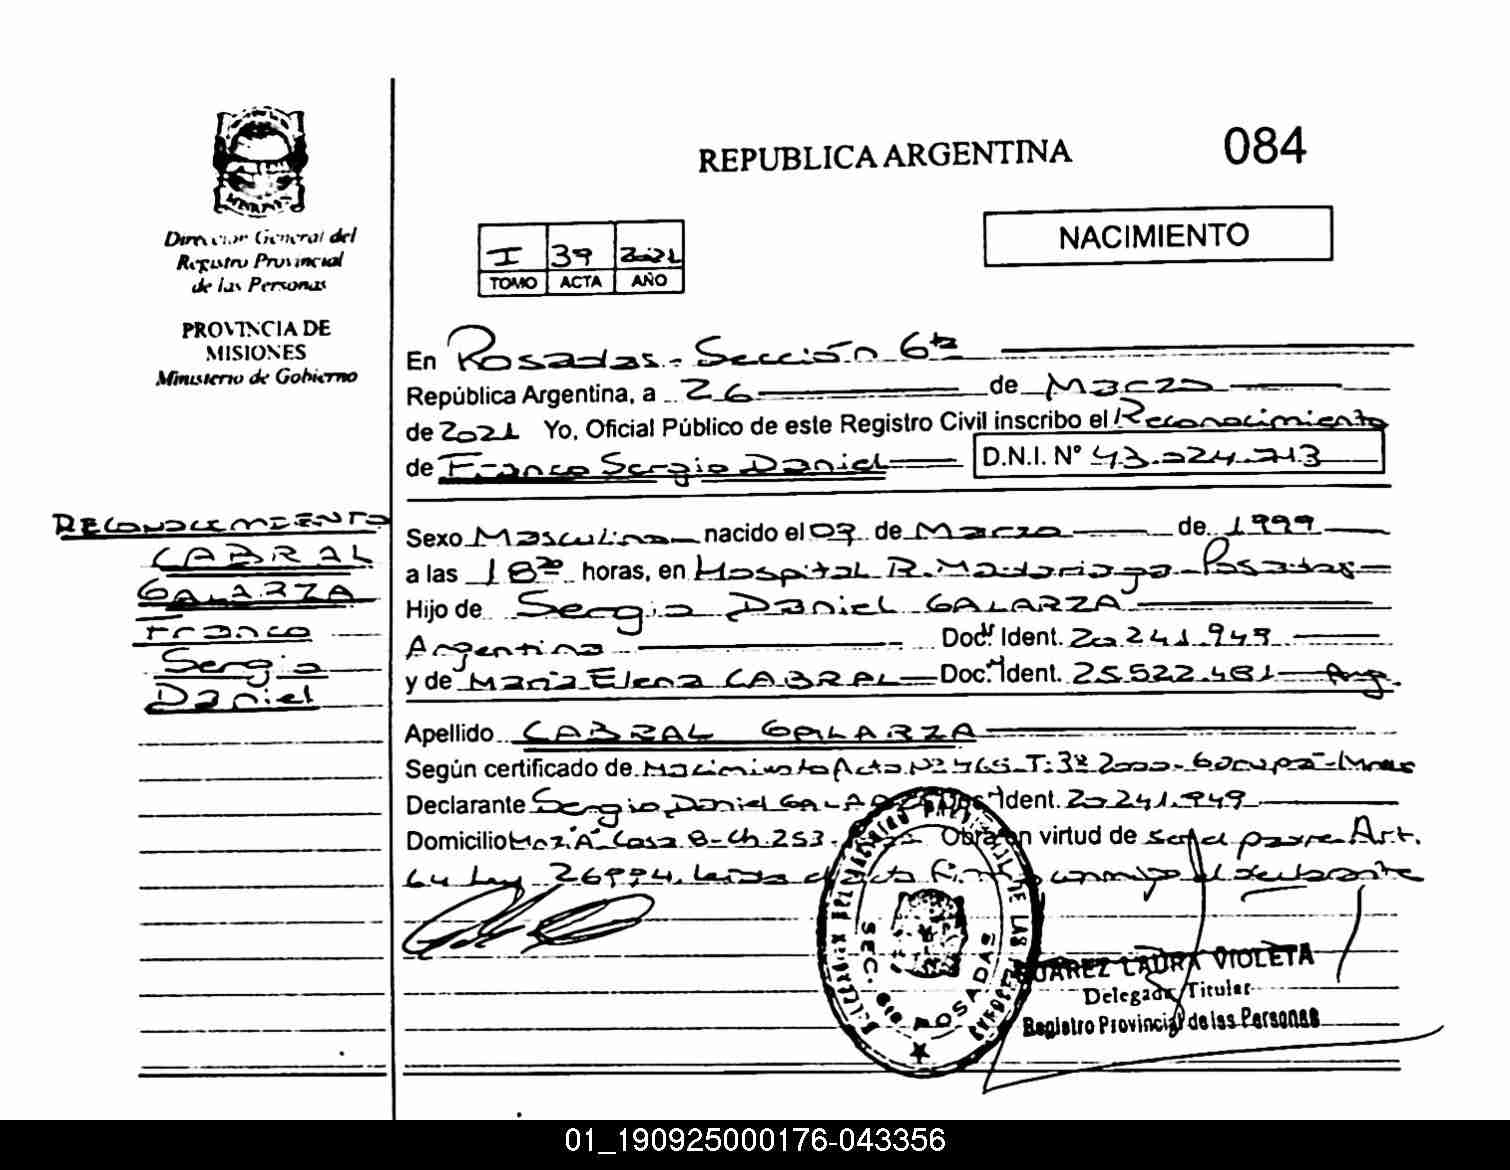 REPUBLICA ARGENTINA
084
Dirección General del
Registro Provincial
de las Personas
PROVINCIA DE
MISIONES
Ministerio de Gobierno
I 39 2021
TOMO ACTA AÑO
NACIMIENTO
En Posadas - Sección 6ta
República Argentina, a 26 de Marzo
de 2021 Yo, Oficial Público de este Registro Civil inscribo el Reconocimiento
de Franco Sergio Daniel D.N.I. N° 43.024.213
RECONOCIMIENTO
CABRAL
GALARZA
Franco
Sergio
Daniel
Sexo Masculino nacido el 09 de Marzo de 1999
a las 18 horas, en Hospital R. Madariaga - Posadas
Hijo de Sergio Daniel GALARZA
Argentino Doc. Ident. 20.241.949
y de Maria Elena CABRAL Doc. Ident. 25.522.481 Arg.
Apellido CABRAL GALARZA
Según certificado de Nacimiento Acta N° T: 3° 2000
Declarante Sergio Daniel GALARZA Doc. Ident. 20.241.949
Domicilio Casa 8 - Ch. 253 Obra en virtud de ser el padre Art.
64 Ley 26994. conmigo el declarante
SEC. 6ta POSADAS
SUAREZ LAURA VIOLETA
Delegada Titular
Registro Provincial de las Personas
01_190925000176-043356